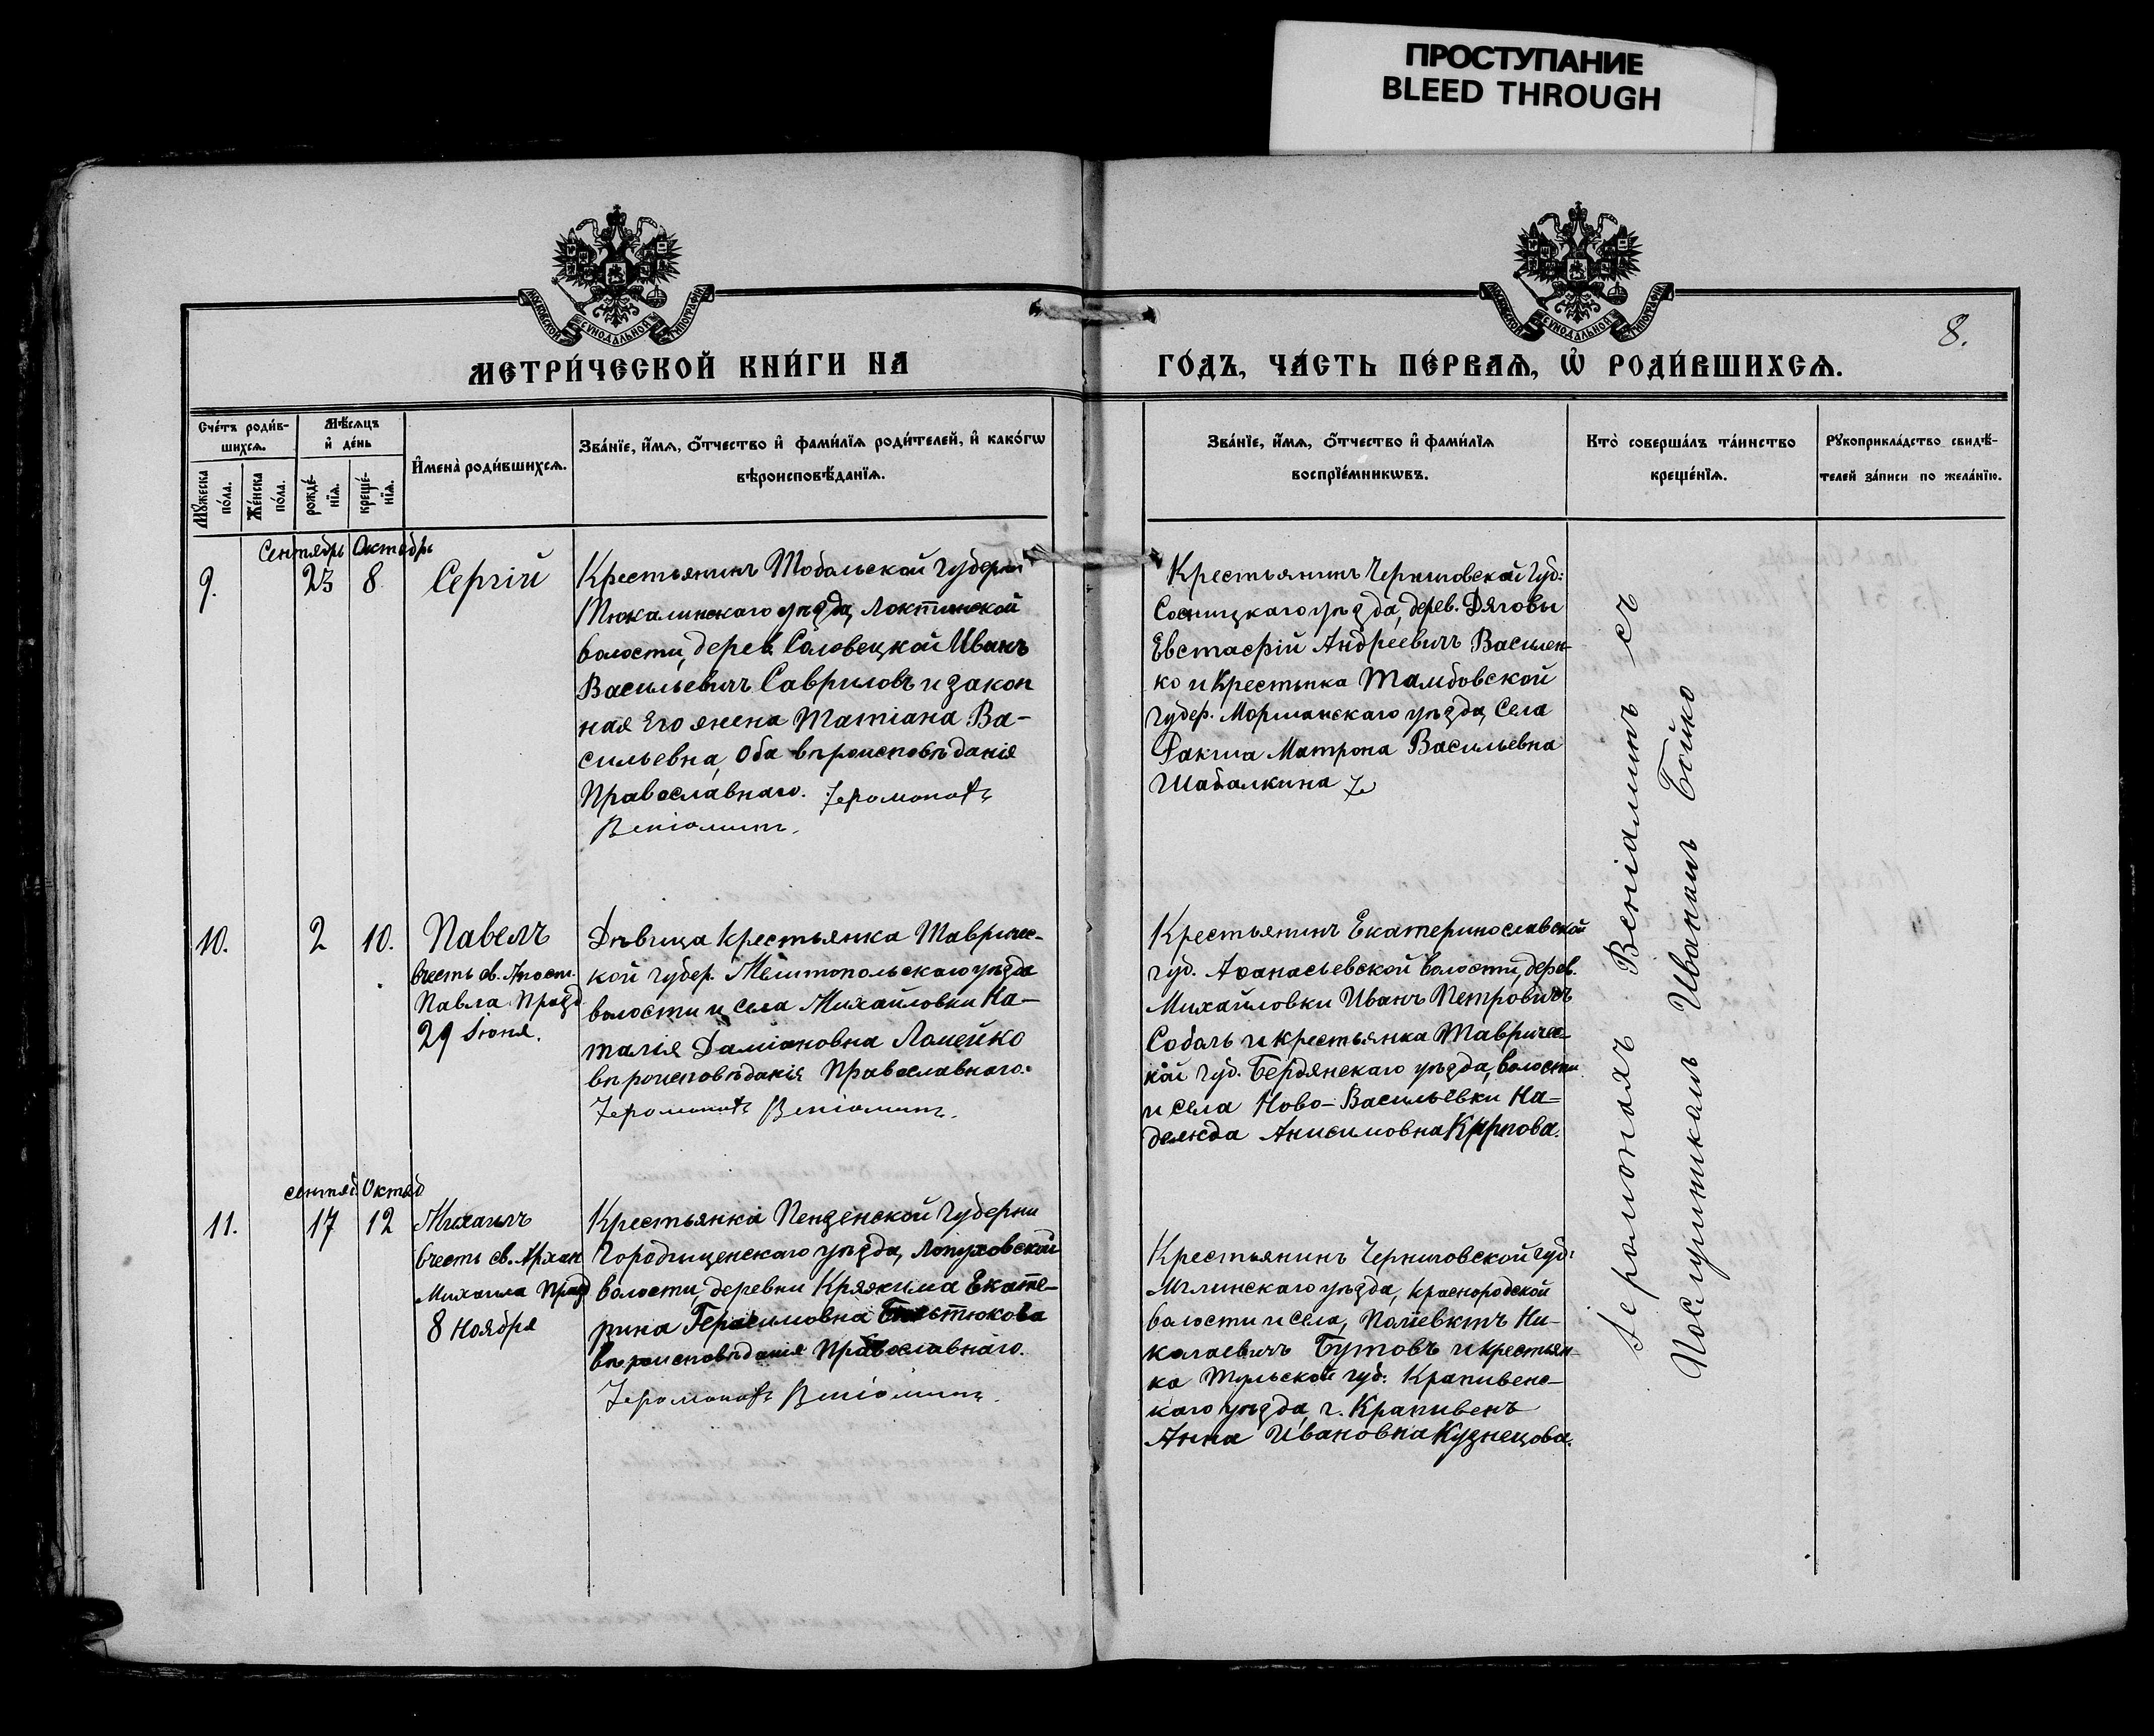 ПРОСТУПАНИЕ
BLEED THROUGH
МОСКОВСКОЙ СѴНОДАЛЬНОЙ ТИПОГРАФІИ
МОСКОВСКОЙ СѴНОДАЛЬНОЙ ТИПОГРАФІИ
8.
МЕТРИ́ЧЕСКОЙ КНИ́ГИ НА
ГО́ДЪ, ЧА́СТЬ ПЕ́РВАѦ, Ѡ҆ РОДИ́ВШИХСѦ.
Сче́тъ роди́в-
шихсѧ.
Мѣ́сѧцъ
и҆ де́нь
Мꙋ́жеска
по́ла.
Же́нска
по́ла.
рожде́-
нїѧ.
креще́-
нїѧ.
И҆мена̀ роди́вшихсѧ.
Зва́нїе, и҆́мѧ, ѻ҆́тчество и҆ фами́лїѧ роди́телей, и҆ како́гѡ
вѣроисповѣ́данїѧ.
Зва́нїе, и҆́мѧ, ѻ҆́тчество и҆ фами́лїѧ
воспрїе́мникѡвъ.
Кто̀ соверша́лъ та́инство
креще́нїѧ.
Рꙋкоприкла́дство свидѣ́-
телей за́писи по жела́нїю.
Сентябрь Октябрь
9. 23 8. Сергій
Крестьянинъ Тобольской губерни
Тюкалинскаго уѣзда, Локтинской
волости, дерев. Соловецкой Иванъ
Васильевичъ Гавриловъ и закон
ная Его жена Татіана Ва-
сильевна, Оба вѣроисповѣданія
Православнаго. Іеромонахъ
Веніаминъ.
Крестьянинъ Черниговской Губ:
Сосницкаго уѣзда, дерев. Дяговы
Евстафій Андреевичъ Василен-
ко и Крестьнка Тамбовской
Губер. Моршанскаго уѣзда, Села
Ракша Матрона Васильевна
Шабалкина Іе
10. 2 10. Павелъ
вчесть св. Апост.
Павла Празд.
29 Іюня.
Дѣвица Крестьянка Тавричес-
кой губер. Мелитопольскаго уѣзда
волости и Села Михайловки На-
талія Даміановна Ломейко
вѣроисповѣданія Православнаго.
Іеромонахъ Веніаминъ.
Крестьянинъ Екатеринославской
губ. Афанасьевской волости, дерев.
Михайловки Иванъ Петровичъ
Соболь и крестьянка Тавричес-
кой губ. Бердянскаго уѣзда, волости
и Села Ново-Васильевки На-
дежда Анисимовна
сентяб. Октяб
11. 17 12 Михаилъ
вчесть св. Архан
Михаила Празд
8 Ноября
Крестьянка Пензенской Губерни
Городищенскаго уѣзда, Лопуховской
волости, деревни Екате-
рина Герасимовна
вѣроисповѣданія Православнаго.
Іеромонахъ Веніаминъ.
Крестьянинъ Черниговской губ:
Мглинскаго уѣзда, Красногородской
волости и села, Полievктъ Ни-
колаевичъ Бутовъ и крестьян-
ка Тульской губ. Крапивенс-
каго уѣзда, г. Крапивенъ
Анна Ивановна Кузнецова.
Іеромонахъ Веніаминъ съ
Послушникомъ Иваномъ Бойко